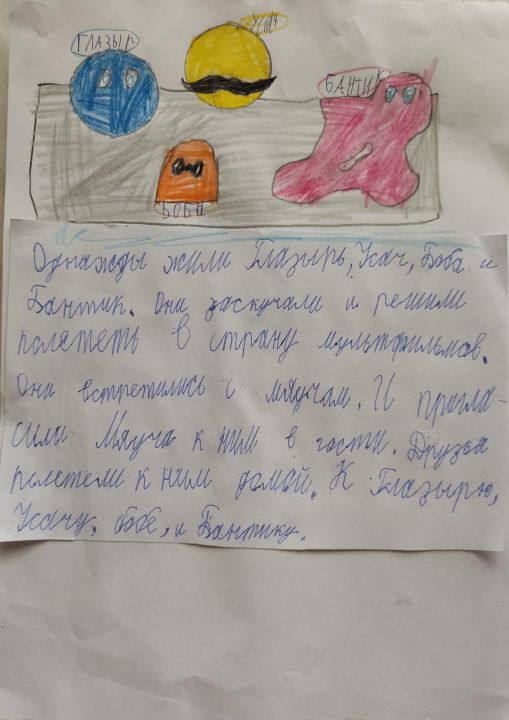 ГЛАЗЫР
УСАЧ
БАНТИК
БОБА
Однажды жили Глазырь, Усач, Боба и
Бантик. Они заскучали и решили
полететь в страну мультфильмов.
Они встретились с мяучам. И пригла-
сили Мяуча к ним в гости. Друзья
полетели к ним домой. К Глазырю,
Усачу, бобе, и Бантику.